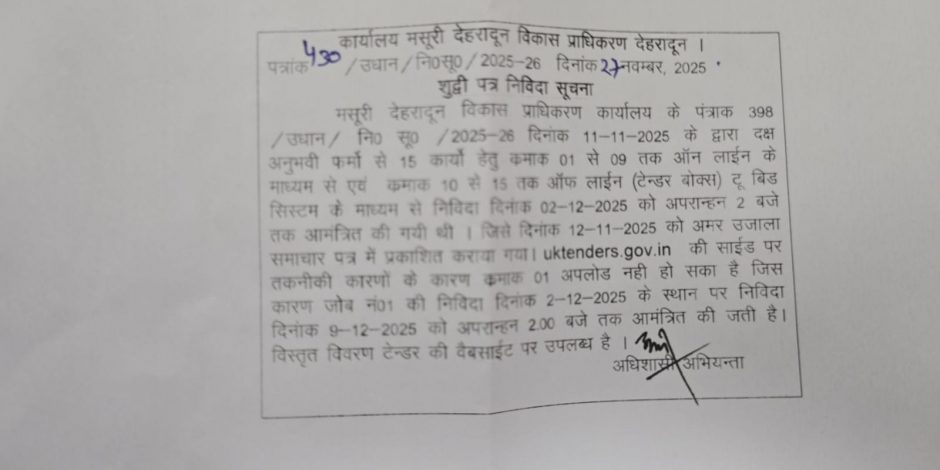 कार्यालय मसूरी देहरादून विकास प्राधिकरण देहरादून ।
पत्रांक 430 /उधान/नि0सू0/2025-26 दिनांक 27 नवम्बर, 2025
शुद्वी पत्र निविदा सूचना
मसूरी देहरादून विकास प्राधिकरण कार्यालय के पंत्राक 398
/उधान/ नि0 सू0 /2025-26 दिनांक 11-11-2025 के द्वारा दक्ष
अनुभवी फर्मो से 15 कार्यो हेतु कमाक 01 से 09 तक ऑन लाईन के
माध्यम से एवं कमाक 10 से 15 तक ऑफ लाईन (टेन्डर बोक्स) टू बिड
सिस्टम के माध्यम से निविदा दिनांक 02-12-2025 को अपरान्हन 2 बजे
तक आमंत्रित की गयी थी । जिसे दिनांक 12-11-2025 को अमर उजाला
समाचार पत्र में प्रकाशित कराया गया। uktenders.gov.in की साईड पर
तकनीकी कारणों के कारण कमाक 01 अपलोड नही हो सका है जिस
कारण जोब नं01 की निविदा दिनांक 2-12-2025 के स्थान पर निविदा
दिनांक 9-12-2025 को अपरान्हन 2.00 बजे तक आमंत्रित की जती है।
विस्तृत विवरण टेन्डर की वैबसाईट पर उपलब्ध है ।
अधिशासी अभियन्ता